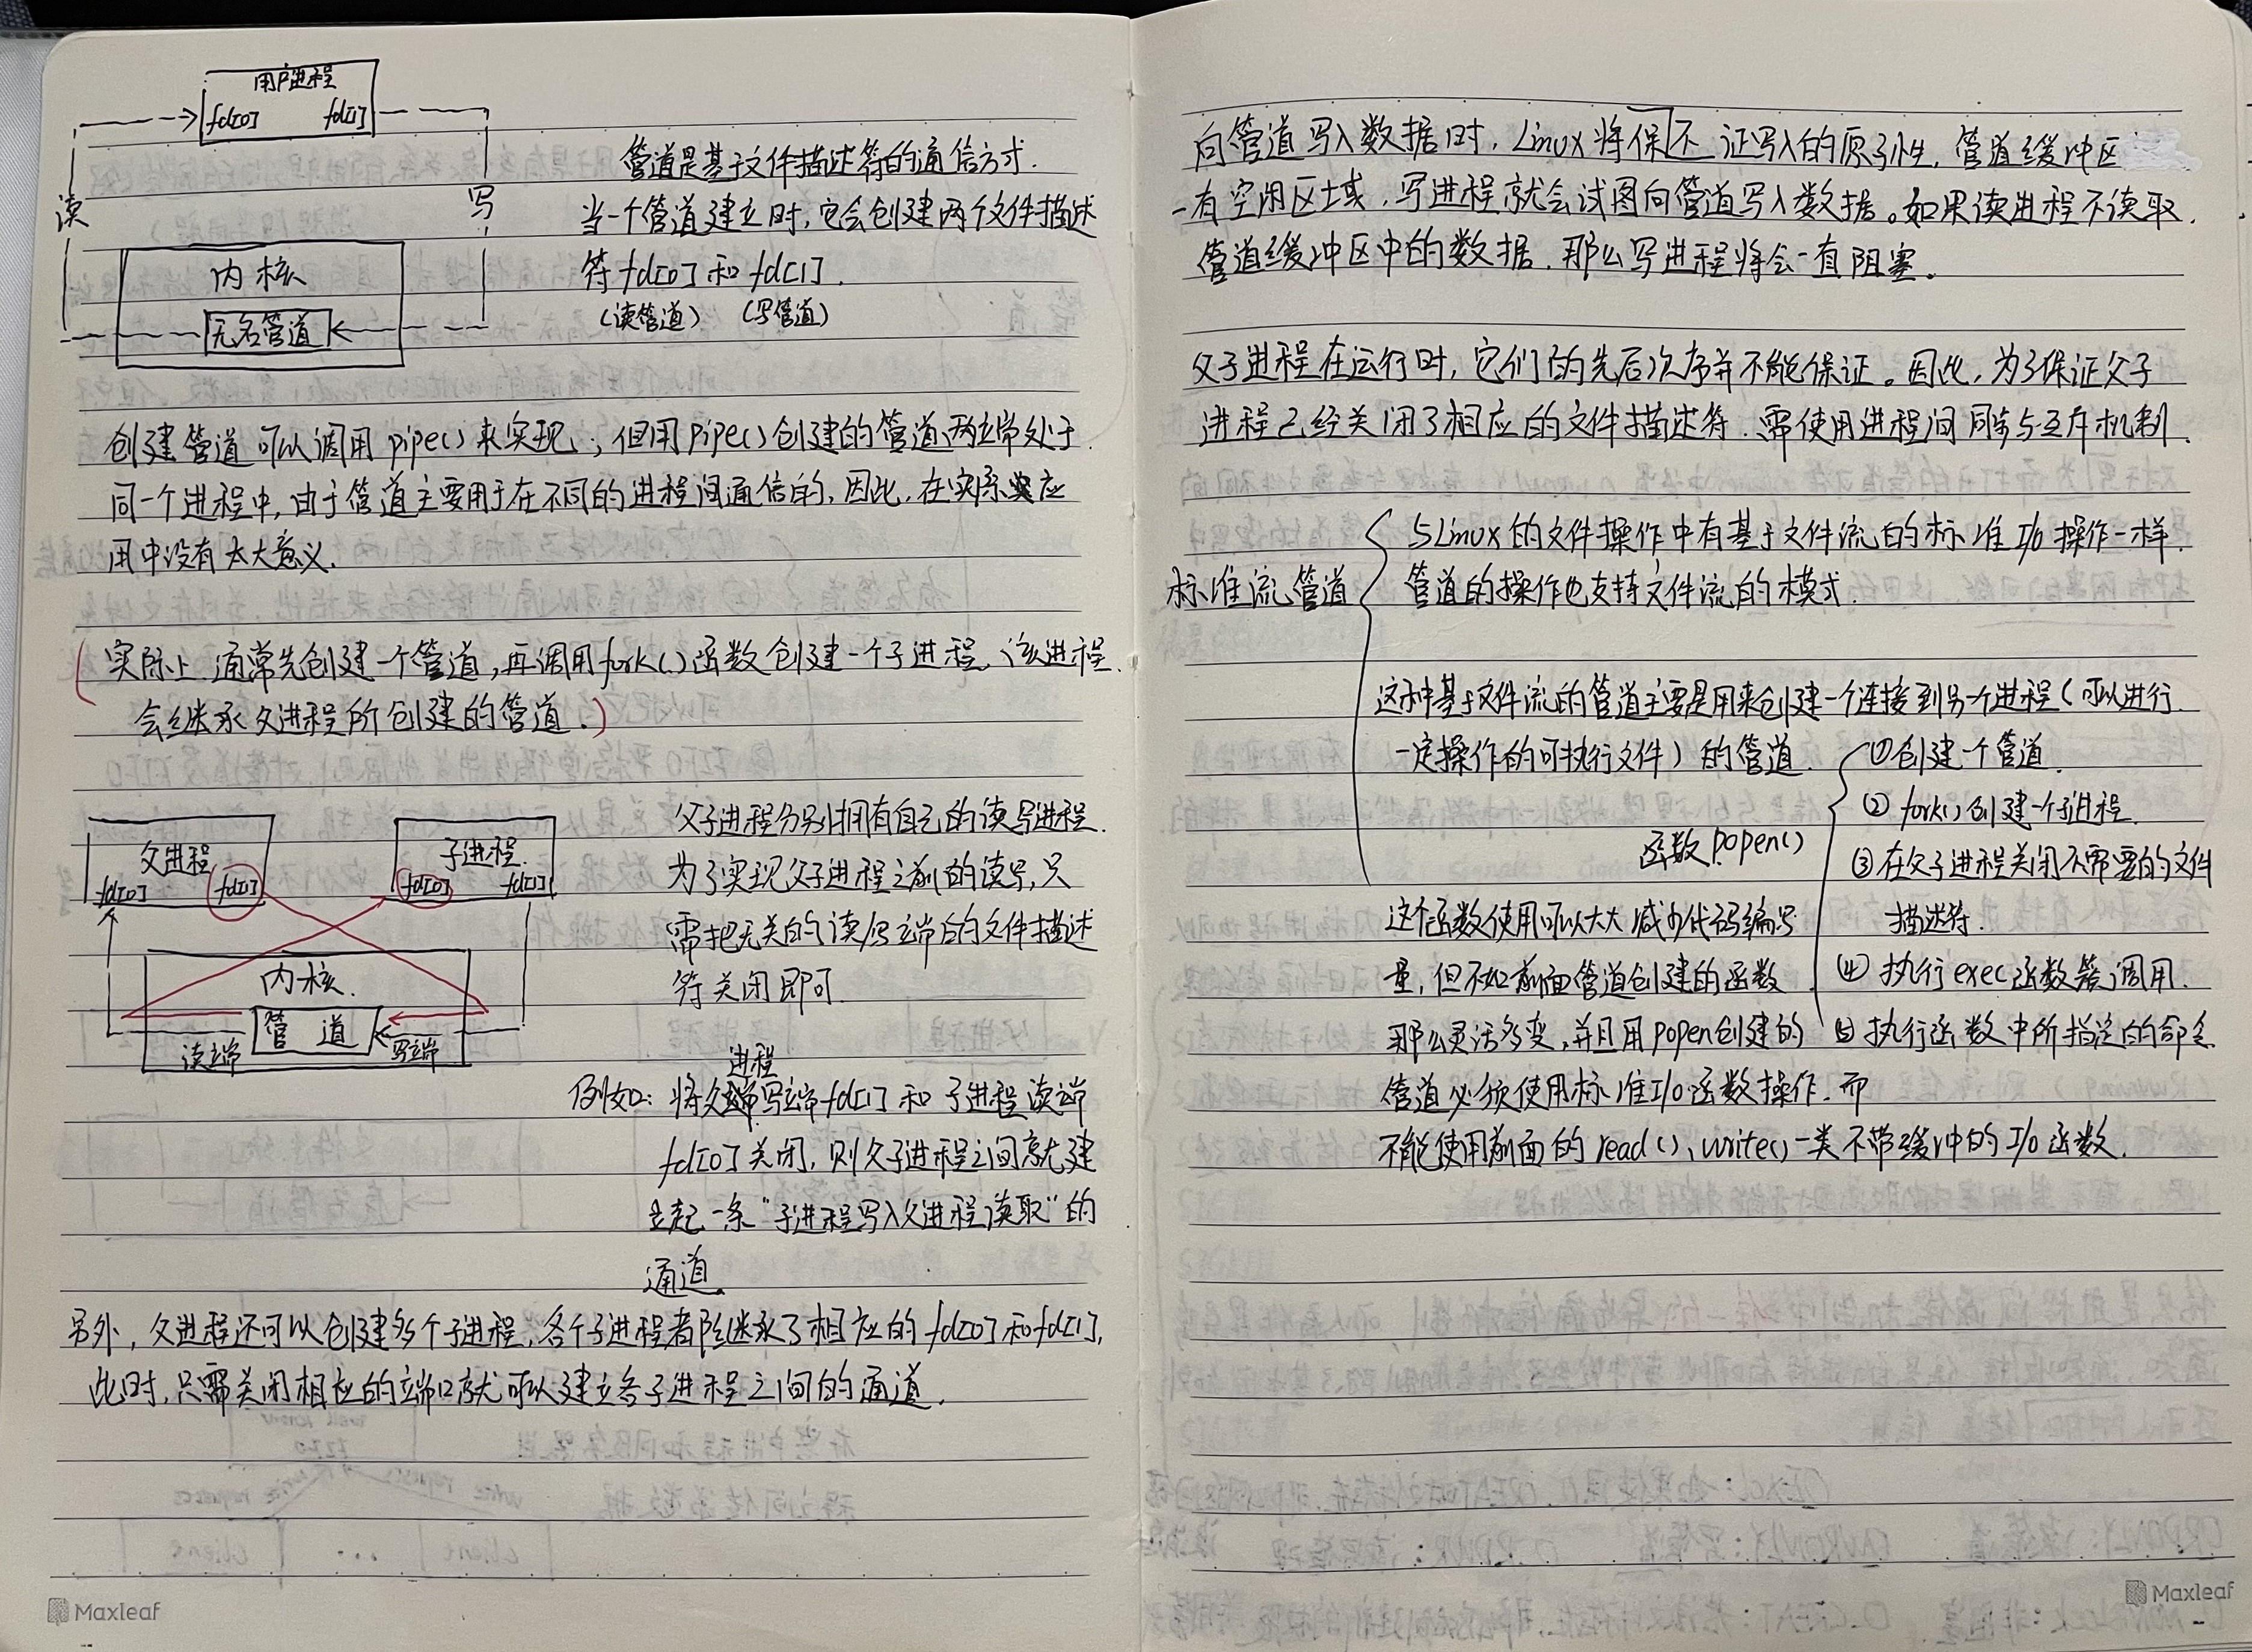 用户进程
fd[0] fd[1]
读
写
内核
无名管道
管道是基于文件描述符的通信方式.
当一个管道建立时,它会创建两个文件描述
符 fd[0] 和 fd[1].
(读管道) (写管道)
创建管道可以调用 pipe() 来实现,但用pipe()创建的管道两端处于
同一个进程中,由于管道主要用于在不同的进程间通信的,因此,在实际应
用中没有太大意义.
(实际上 通常先创建一个管道,再调用fork()函数创建一个子进程,该进程
会继承父进程所创建的管道.)
父进程
fd[0] fd[1]
子进程
fd[0] fd[1]
内核
管道
读端 写端
父子进程分别拥有自己的读写进程.
为了实现父子进程之前的读写,只
需把无关的读/写端的文件描述
符关闭即可.
例如:将父进程写端fd[1] 和 子进程读端
fd[0]关闭,则父子进程之间就建
立起一条“子进程写入父进程读取"的
通道.
另外,父进程还可以创建多个子进程,各个子进程都继承了相应的 fd[0] 和fd[1],
此时,只需关闭相应的端口就可以建立各子进程之间的通道.
Maxleaf
向管道写入数据时,Linux将不保证写入的原子性,管道缓冲区
一有空闲区域,写进程就会试图向管道写入数据。如果读进程不读取
管道缓冲区中的数据,那么写进程将会一直阻塞。
父子进程在运行时,它们的先后次序并不能保证。因此,为了保证父子
进程已经关闭了相应的文件描述符,需使用进程间同步与互斥机制.
标准流管道
与Linux的文件操作中有基于文件流的标准 I/O 操作一样.
管道的操作也支持文件流的模式.
这种基于文件流的管道主要是用来创建一个连接到另一个进程(可以进行
一定操作的可执行文件)的管道.
函数 popen()
①创建一个管道.
② fork()创建一个子进程.
③在父子进程关闭不需要的文件
描述符.
④ 执行exec函数簇调用.
⑤ 执行函数中所指定的命令
这个函数使用可以大大减少代码编写
量,但不如前面管道创建的函数
那么灵活多变,并且用popen创建的
管道必须使用标准I/O函数操作.而
不能使用前面的read()、write()一类不带缓冲的I/O函数.
Maxleaf